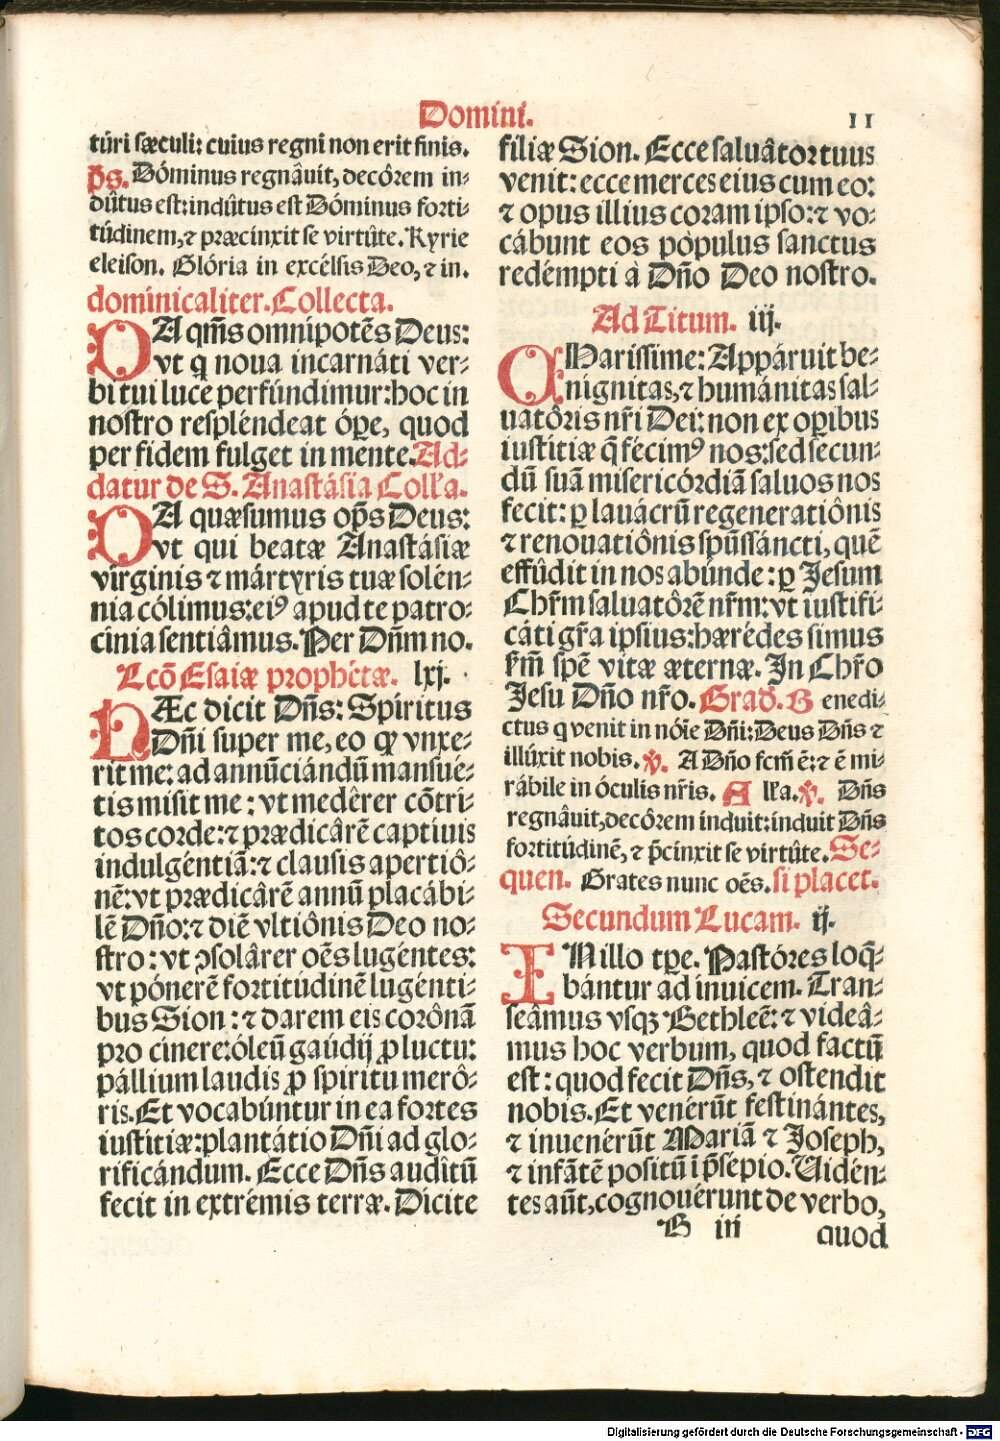 Domini. 11
túri sæculi: cuius regni non erit finis.
p̄s. Dóminus regnâuit, decôrem in-
dûtus est: indûtus est Dóminus forti-
túdinem, ⁊ præcinxit se virtûte. Kyrie
eleison. Glória in excélsis Deo, ⁊ in.
dominicaliter. Collecta.
DA qm̄s omnipotẽs Deus:
vt q noua incarnáti ver-
bi tui luce perfúndimur: hoc in
nostro respléndeat óꝑe, quod
per fidem fulget in mente. Ad-
datur de S. Anastásia Coll'a.
DA quæsumus op̄s Deus:
vt qui beatæ Anastásiæ
virginis ⁊ mártyris tuæ solén-
nia cólimus: eiꝰ apud te patro-
cínia sentiâmus. Per Dñm no.
Lcõ Esaiæ prophétæ. lxj.
HÆc dicit Dñs: Spíritus
Dñi super me, eo ꝙ vnxe-
rit me: ad annũciándũ mansué-
tis misit me: vt medêrer cõtri-
tos corde: ⁊ prædicârẽ captiuis
indulgéntiã: ⁊ clausis apertiô-
nẽ: vt prædicârẽ annũ placábi-
lẽ Dño: ⁊ diẽ vltiônis Deo no-
stro: vt ꝯsolârer oẽs lugéntes:
vt pónerẽ fortitúdinẽ lugénti-
bus Sion: ⁊ darem eis corônã
pro cinere: óleũ gaúdij ꝓ luctu:
pállium laudis ꝓ spiritu merô-
ris. Et vocabúntur in ea fortes
iustitiæ: plantátio Dñi ad glo-
rificándum. Ecce Dñs audîtũ
fecit in extrémis terræ. Dicite
filiæ Sion. Ecce saluâtor tuus
venit: ecce merces eius cum eo:
⁊ opus illius coram ipso: ⁊ vo-
cábunt eos pópulus sanctus
redémpti à Dño Deo nostro.
Ad Titum. iij.
CHarissime: Appáruit be-
nignitas, ⁊ humánitas sal-
uatôris nr̃i Dei: non ex opibus
iustitiæ q̃ fécimꝰ nos: sed secun-
dũ suã misericórdiã saluos nos
fecit: ꝑ lauácrũ regeneratiônis
⁊ renouatiônis sp̃ũssáncti, quẽ
effûdit in nos abúnde: ꝑ Jesum
Chr̃m saluatôrẽ nr̃m: vt iustifi-
cáti gr̃a ipsius: hærédes simus
ẜm̃ spẽ vitæ æternæ. In Chr̃o
Jesu Dño nr̃o. Grad̃. B enedi-
ctus q venit in nóĩe Dñi: Deus Dñs ⁊
illúxit nobis. ℣. A Dño fcm̃ ẽ: ⁊ ẽ mi-
rábile in óculis nr̃is. A ll'a. ℣. Dñs
regnâuit, decôrem índuit: índuit Dñs
fortitúdinẽ, ⁊ p̃cinxit se virtûte. Se-
quen. Grates nunc oẽs. si placet.
Secundum Lucam. ij.
IN illo tꝑe. Pastóres loq̃-
bántur ad inuicem. Tran-
seâmus vsqꝫ Bethleẽ: ⁊ videâ-
mus hoc verbum, quod factũ
est: quod fecit Dñs, ⁊ ostendit
nobis. Et venérũt festinántes,
⁊ inuenérũt Mariã ⁊ Joseph,
⁊ infãtẽ positũ ĩ p̃sépio. Vidén-
tes aũt, cognouérunt de verbo,
B iij quod
Digitalisierung gefördert durch die Deutsche Forschungsgemeinschaft - DFG